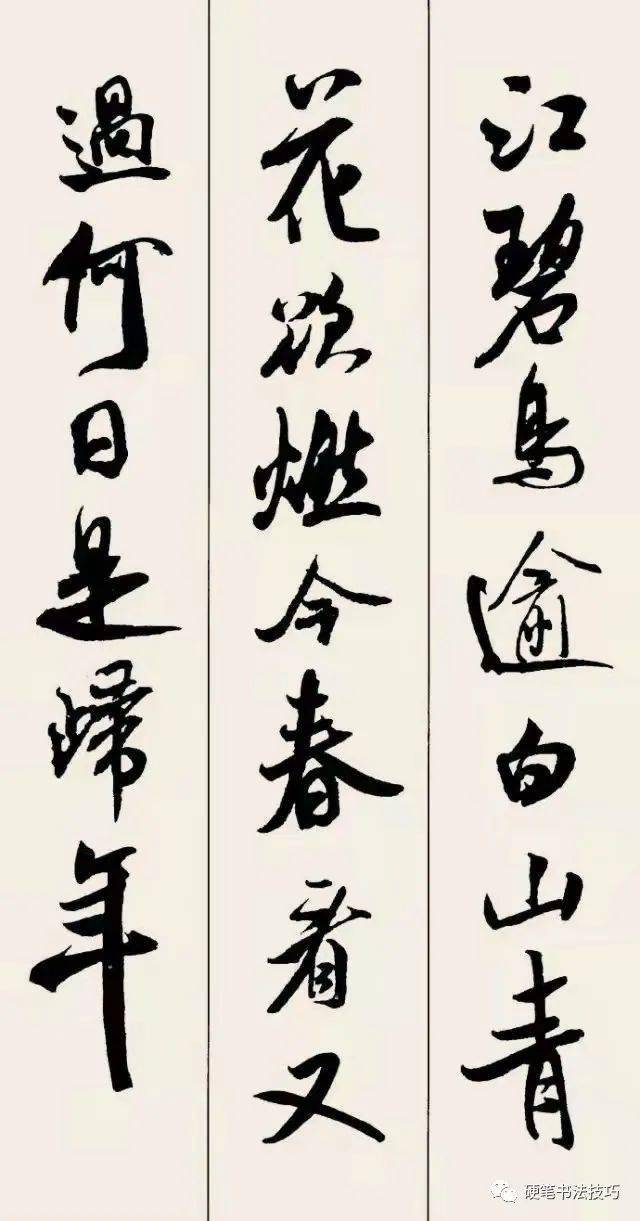 江碧鳥逾白山青
花欲燃今春看又
過何日是歸年
硬笔书法技巧